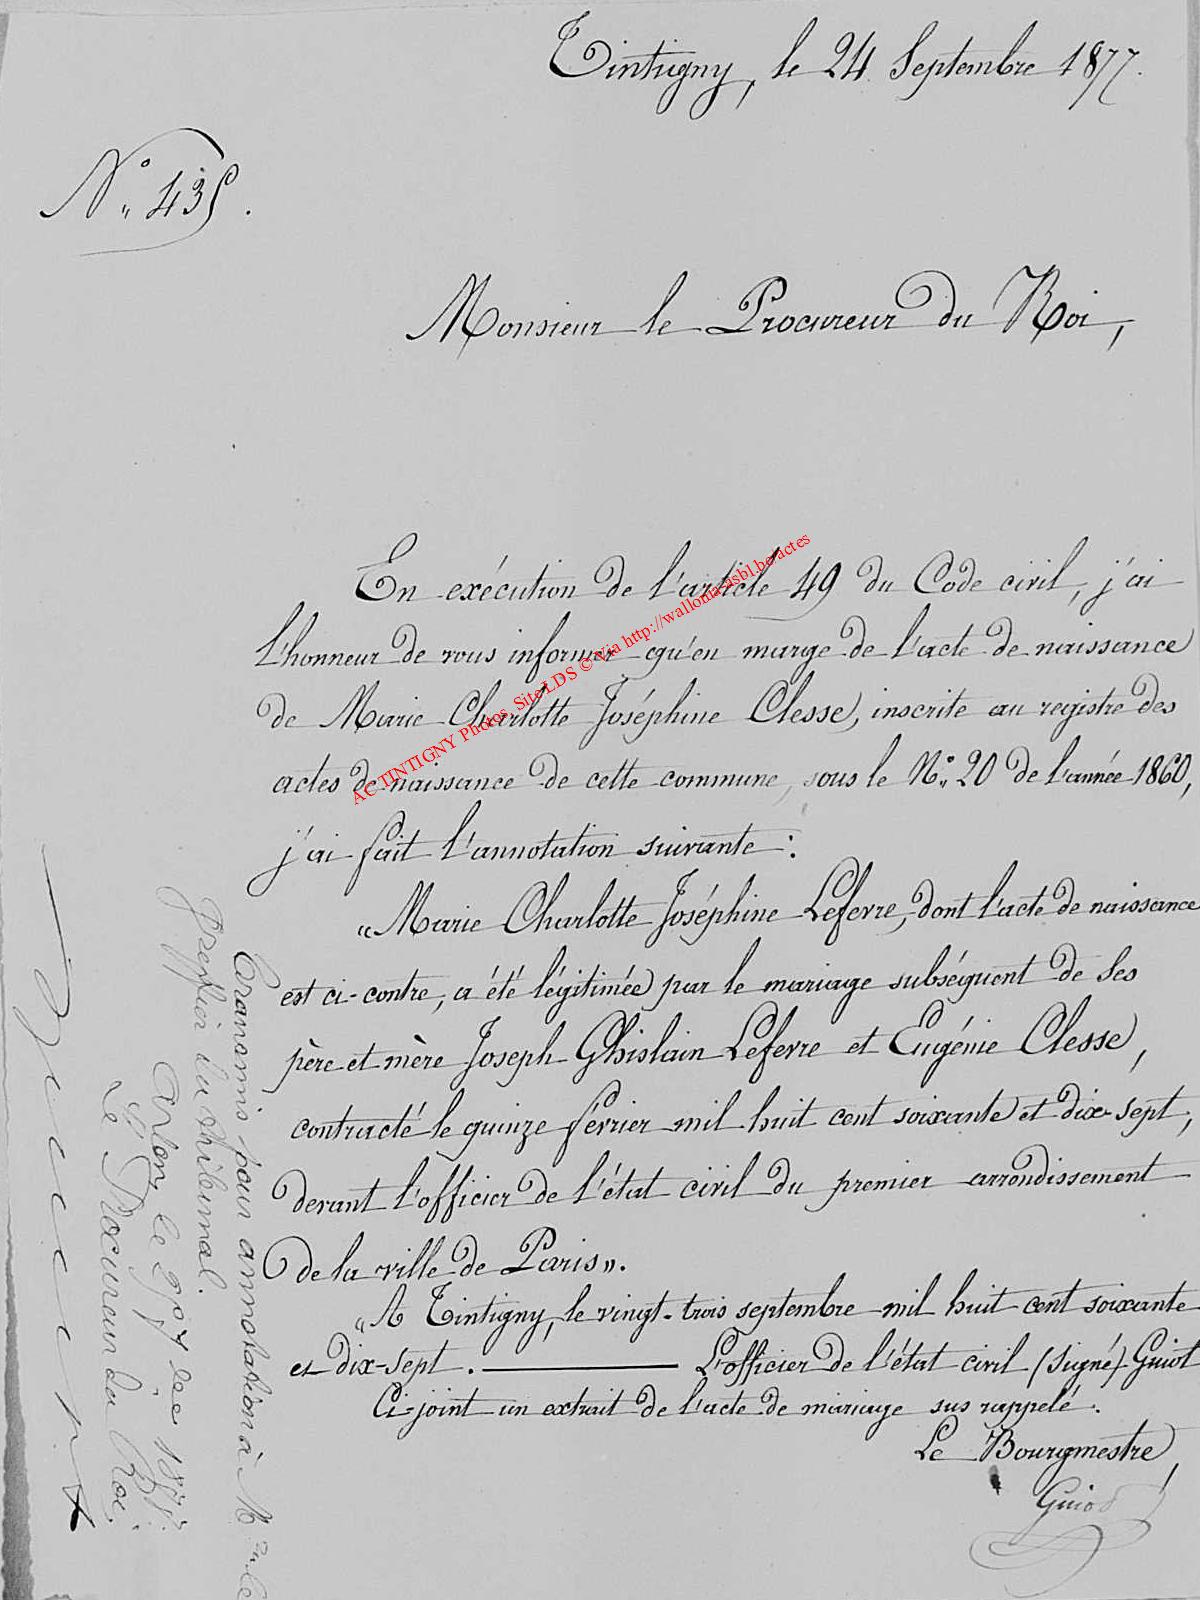 Tintigny, le 24 Septembre 1877.
N° 435.
Monsieur le Procureur du Roi,
En exécution de l'article 49 du Code civil, j'ai
l'honneur de vous informer qu'en marge de l'acte de naissance
de Marie Charlotte Joséphine Clesse, inscrite au registre des
actes de naissance de cette commune, sous le N° 20 de l'année 1860,
j'ai fait l'annotation suivante:
"Marie Charlotte Joséphine Lefevre, dont l'acte de naissance
est ci-contre, a été légitimée par le mariage subséquent de ses
père et mère Joseph Ghislain Lefevre et Eugénie Clesse,
contracté le quinze février mil huit cent soixante et dix-sept,
devant l'officier de l'état civil du premier arrondissement
de la ville de Paris".
"A Tintigny, le vingt-trois septembre mil huit cent soixante
et dix-sept. L'officier de l'état civil (signé) Guiot
Ci-joint un extrait de l'acte de mariage sus rappelé.
Le Bourgmestre,
Guiot
Transmis pour annotation à Mr le
greffier du tribunal.
Arlon, le
Le Procureur du Roi,
AC TINTIGNY Photos, Site LDS © Via http://wallonia-asbl.be/actes